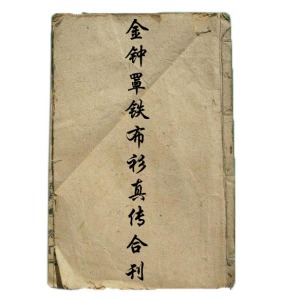 金钟罩铁布衫真传合刊